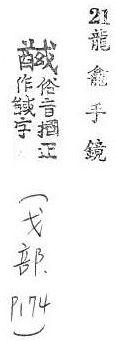 21 龍龕手鏡
俗音摑正
作馘字
(戈部. P174)